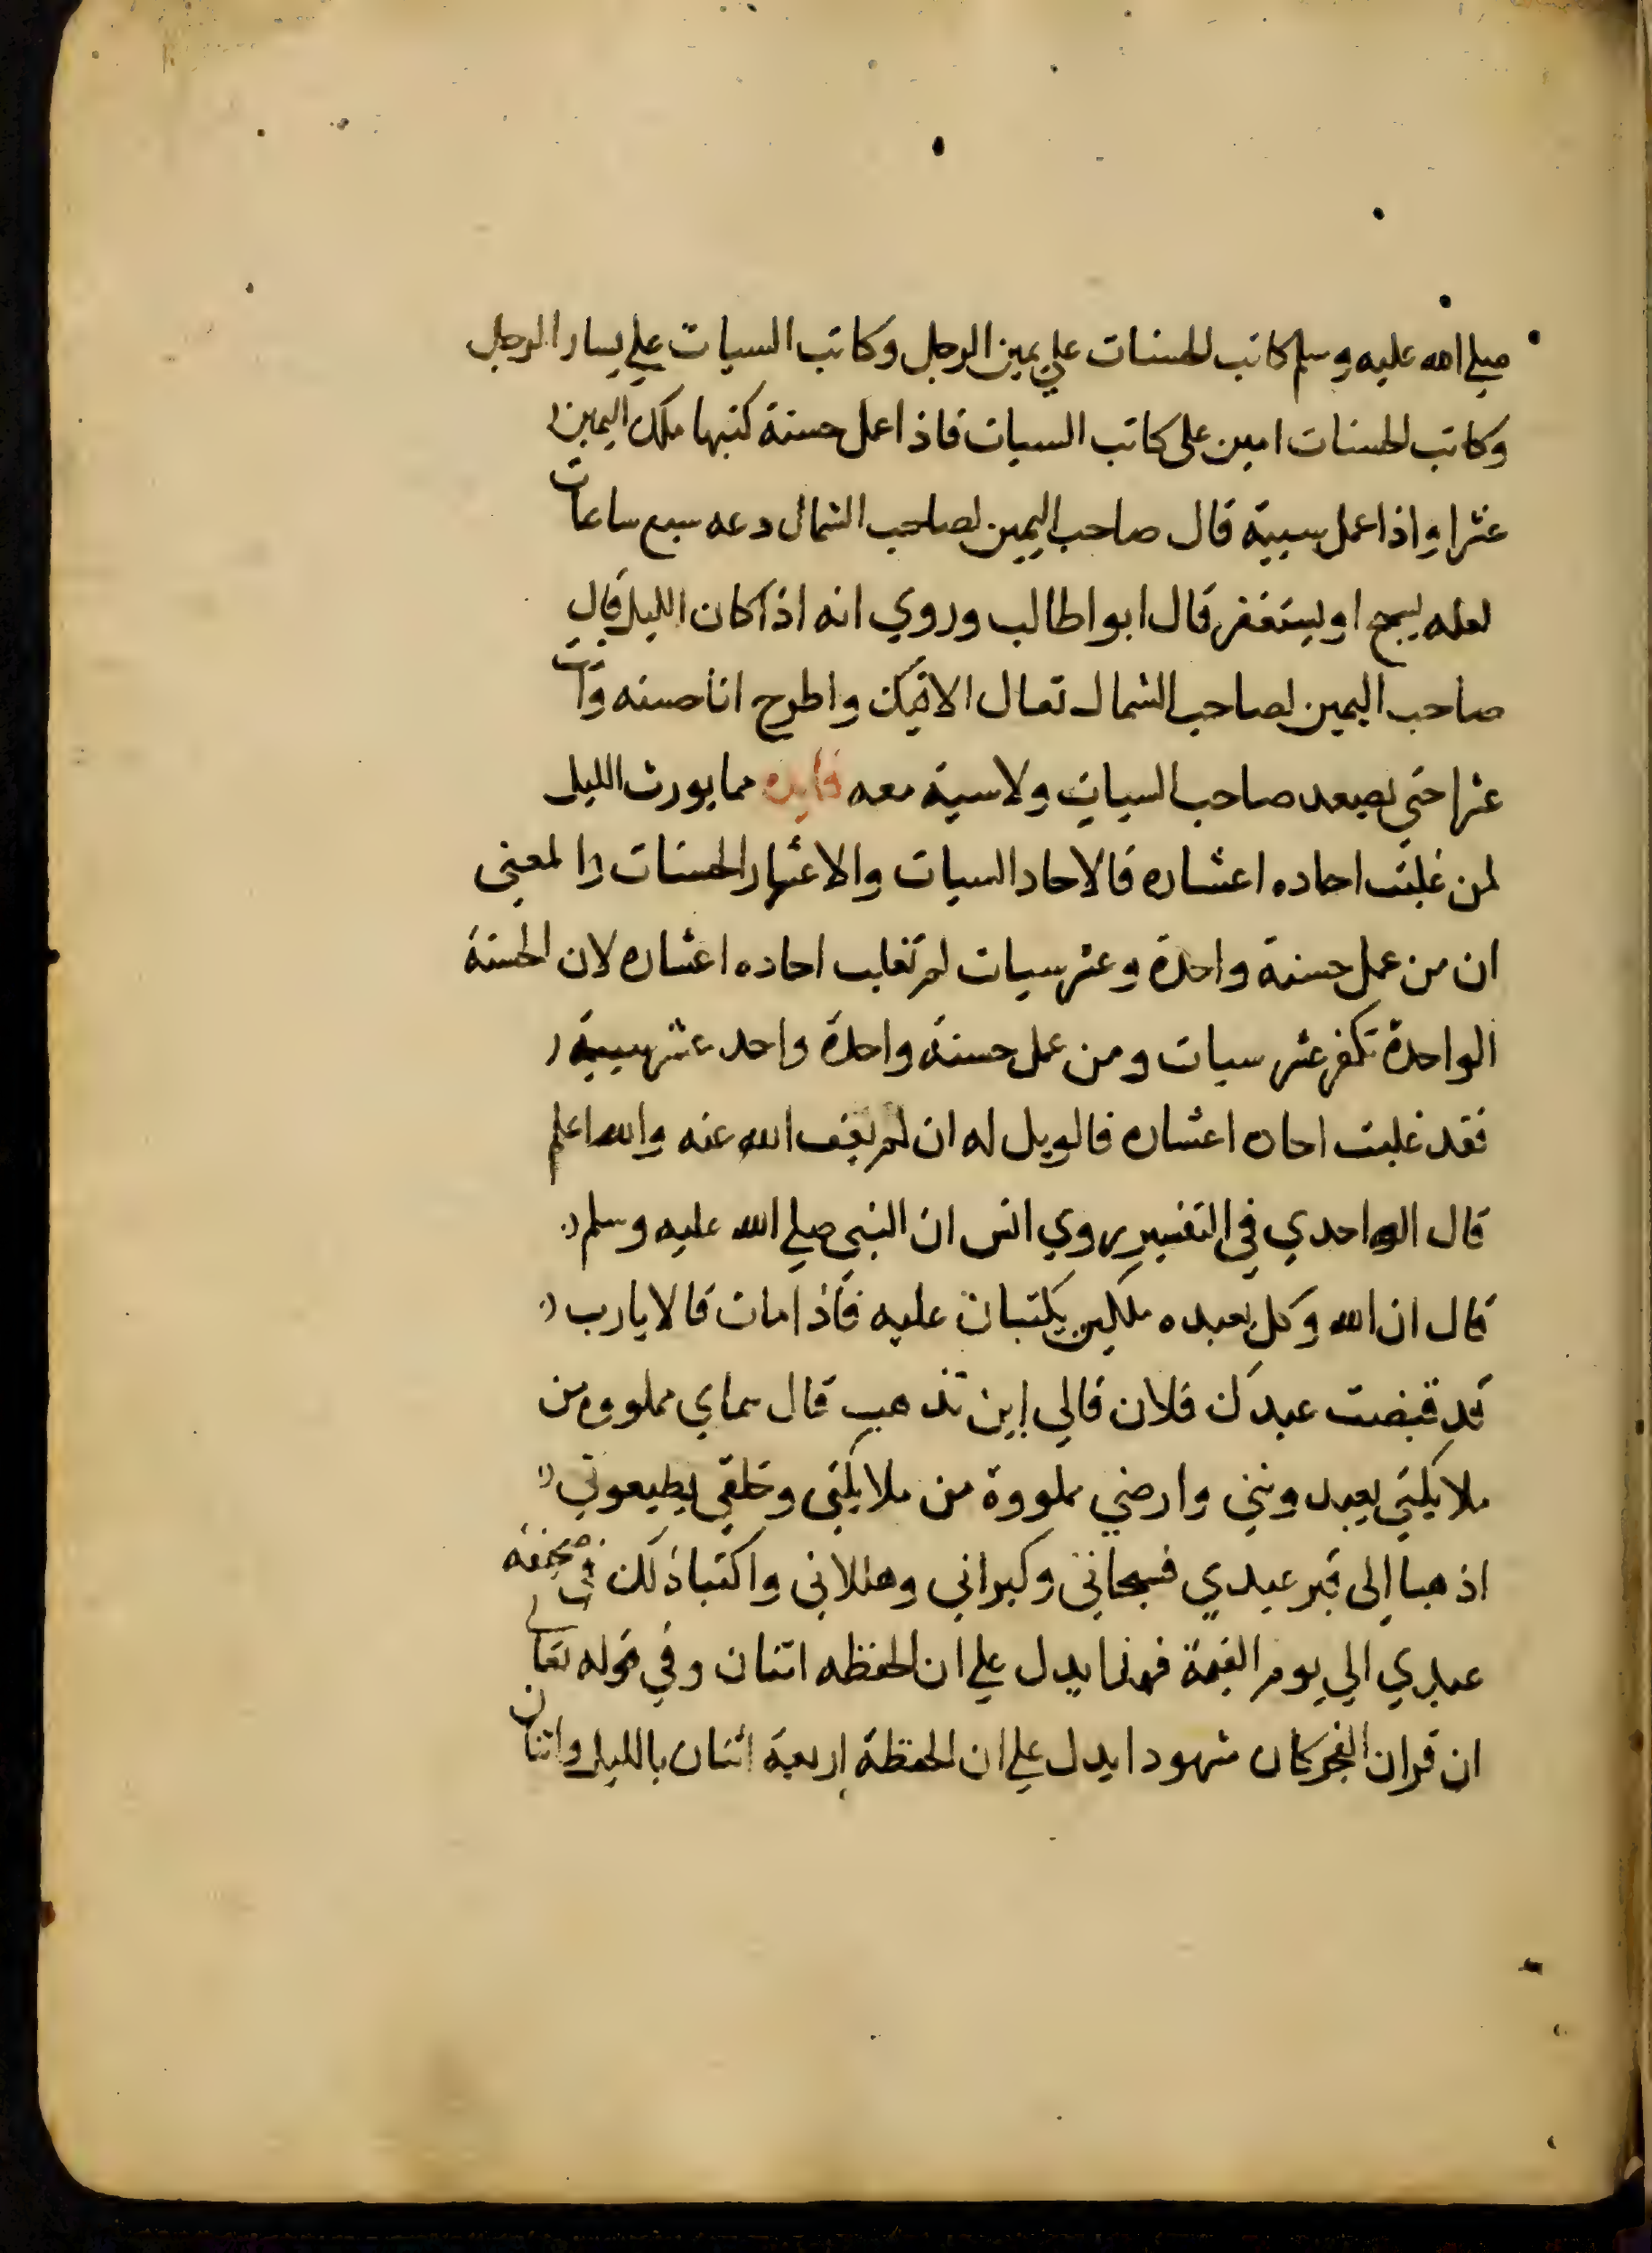 صلي الله عليه وسلم كاتب الحسنات علي يمين الرجل وكاتب السيات علي يسار الرجل
وكاتب الحسنات امين على كاتب السيات فاذا عمل حسنة كتبها ملك اليمين
عشرا واذا عمل سيية قال صاحب اليمين لصاحب الشمال دعه سبع ساعات
لعله يسبح او يستغفر قال ابوا طالب وروي انه اذا كان الليل قال
صاحب اليمين لصاحب الشمال تعال الاقيك واطرح انا حسنه وانت
عشرا حتي يصعد صاحب السيات ولا سية معه فايده مما يورث الليل
لمن غلبت احاده اعشاره فالاحاد السيات والاعشار الحسنات والمعني
ان من عمل حسنة واحدة وعشر سيات لم تغلب احاده اعشاره لان الحسنة
الواحدة تكفر عشر سيات ومن عمل حسنة واحدة واحد عشر سيية
فقد غلبت احاده اعشاره فالويل له ان لم يعف الله عنه والله اعلم
قال الواحدي في التفسير روي انس ان النبي صلي الله عليه وسلم
قال ان الله وكل بعبده ملكين يكتبان عليه فاذا مات قالا يارب
قد قبضت عبدك فلان فالي اين نذهب قال سماي مملووه من
ملايكتي يعبدونني وارضي مملووة من ملايكتي وخلقي يطيعوني
اذهبا الى قبر عبدي فسبحاني وكبراني وهللاني واكتبا ذلك في
عبدي الي يوم القيمة فهذا يدل علي ان الحفظه اثنان وفي قوله تعالي
ان قران الفجر كان مشهودا يدل علي ان الحفظة اربعة اثنان بالليل واثنان